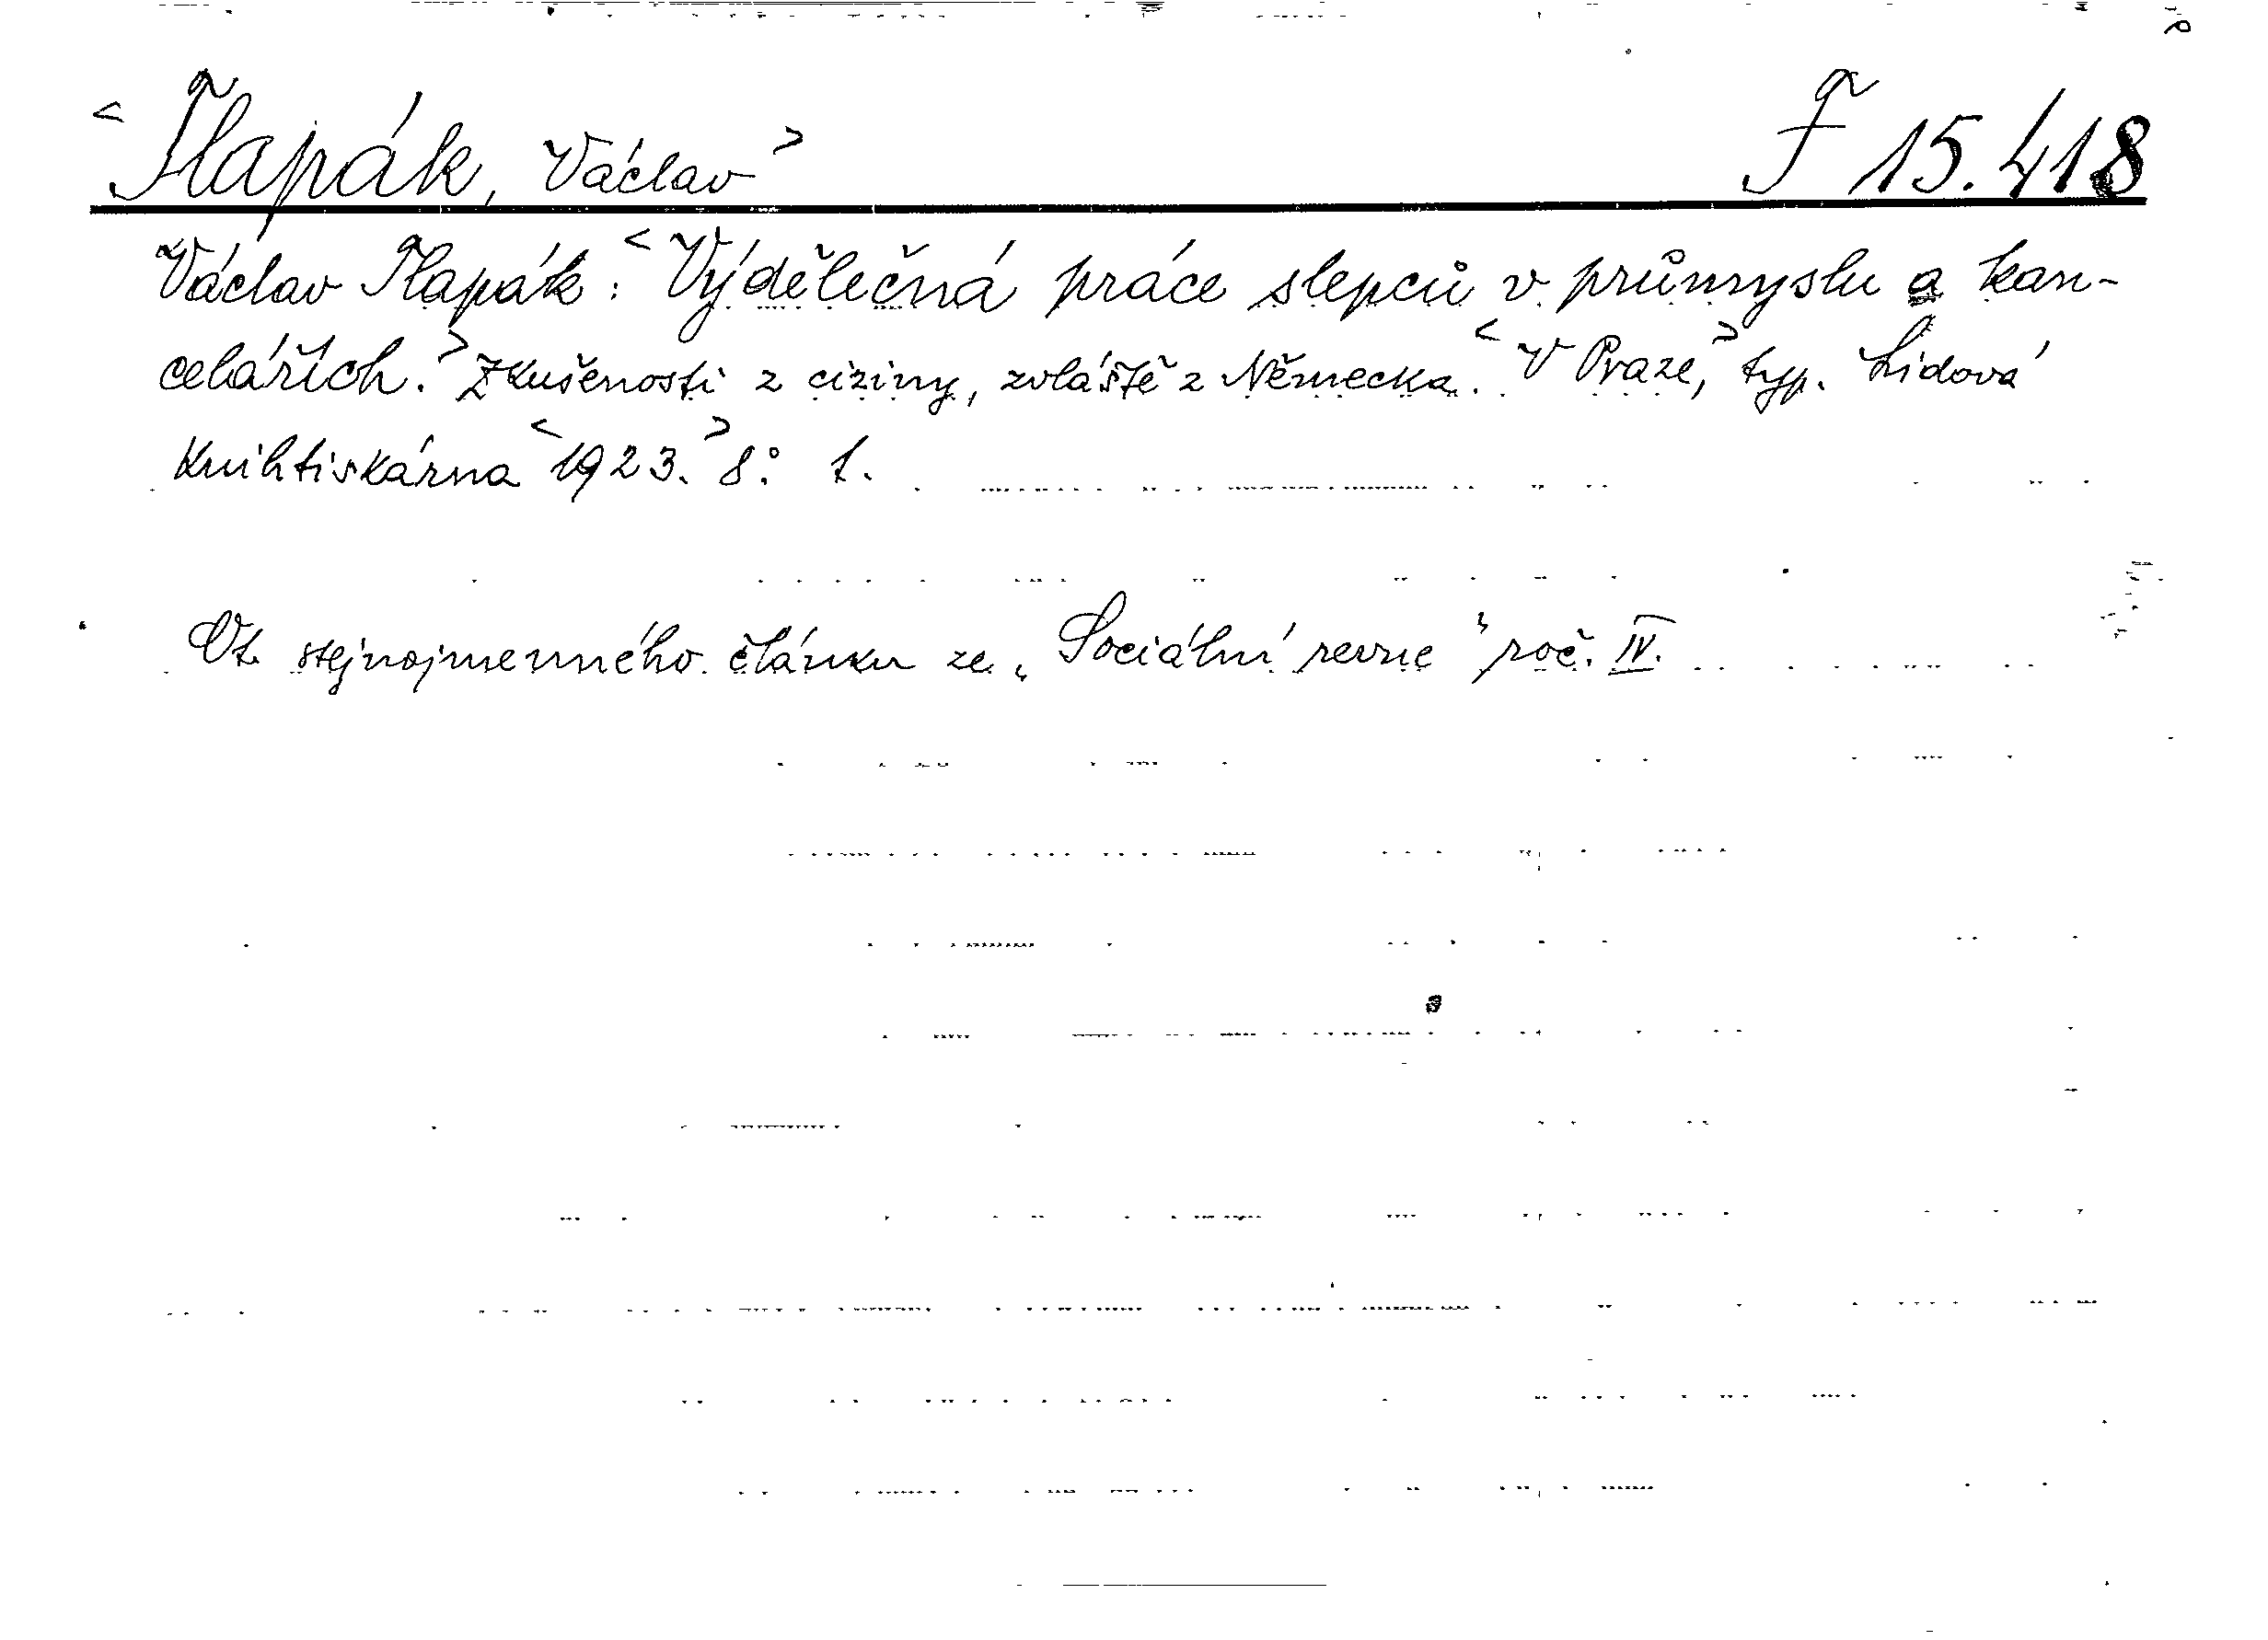 <Tlapák, Václav> F 15.418
Václav Tlapák: <Výdělečná práce slepců v průmyslu a kan-
celářích.> Zkušenosti z ciziny, zvláště z Německa. <V Praze,> typ. Lidová
Knihtiskárna <1923.> 8° 1.
Ot. stejnojmenného článku ze „Sociální revue" roč. IV.